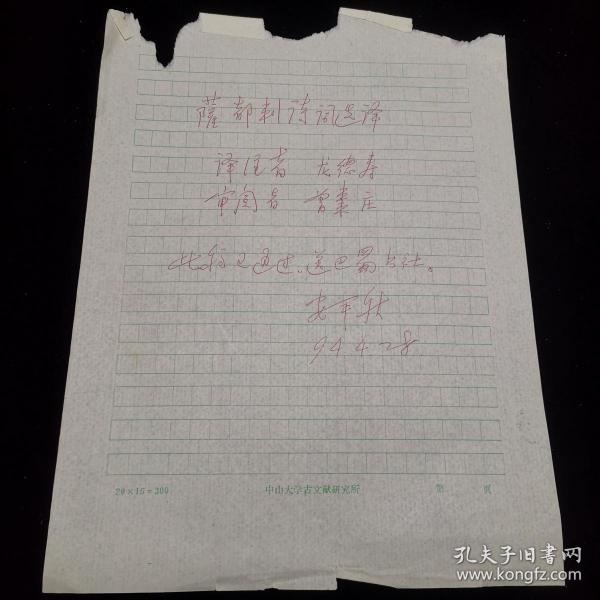 萨都剌诗词选译
译注者 龙德寿
审阅者 曾枣庄
此稿已通过。送巴蜀书社。
安平秋
94.4.28
20×15=300 中山大学古文献研究所 第 頁
孔夫子旧书网
www.kongfz.com